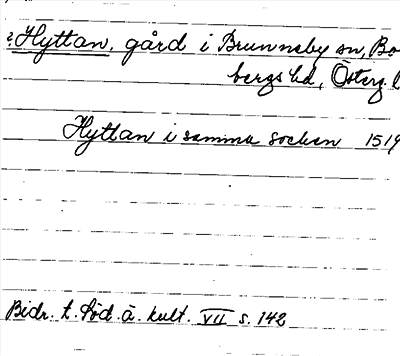 ? Hyttan, gård i Brunneby sn, Bo
bergs hd, Österg. l
Hyttan i samma socken 1519
Bidr. t. Söd. ä. kult. VII s. 142